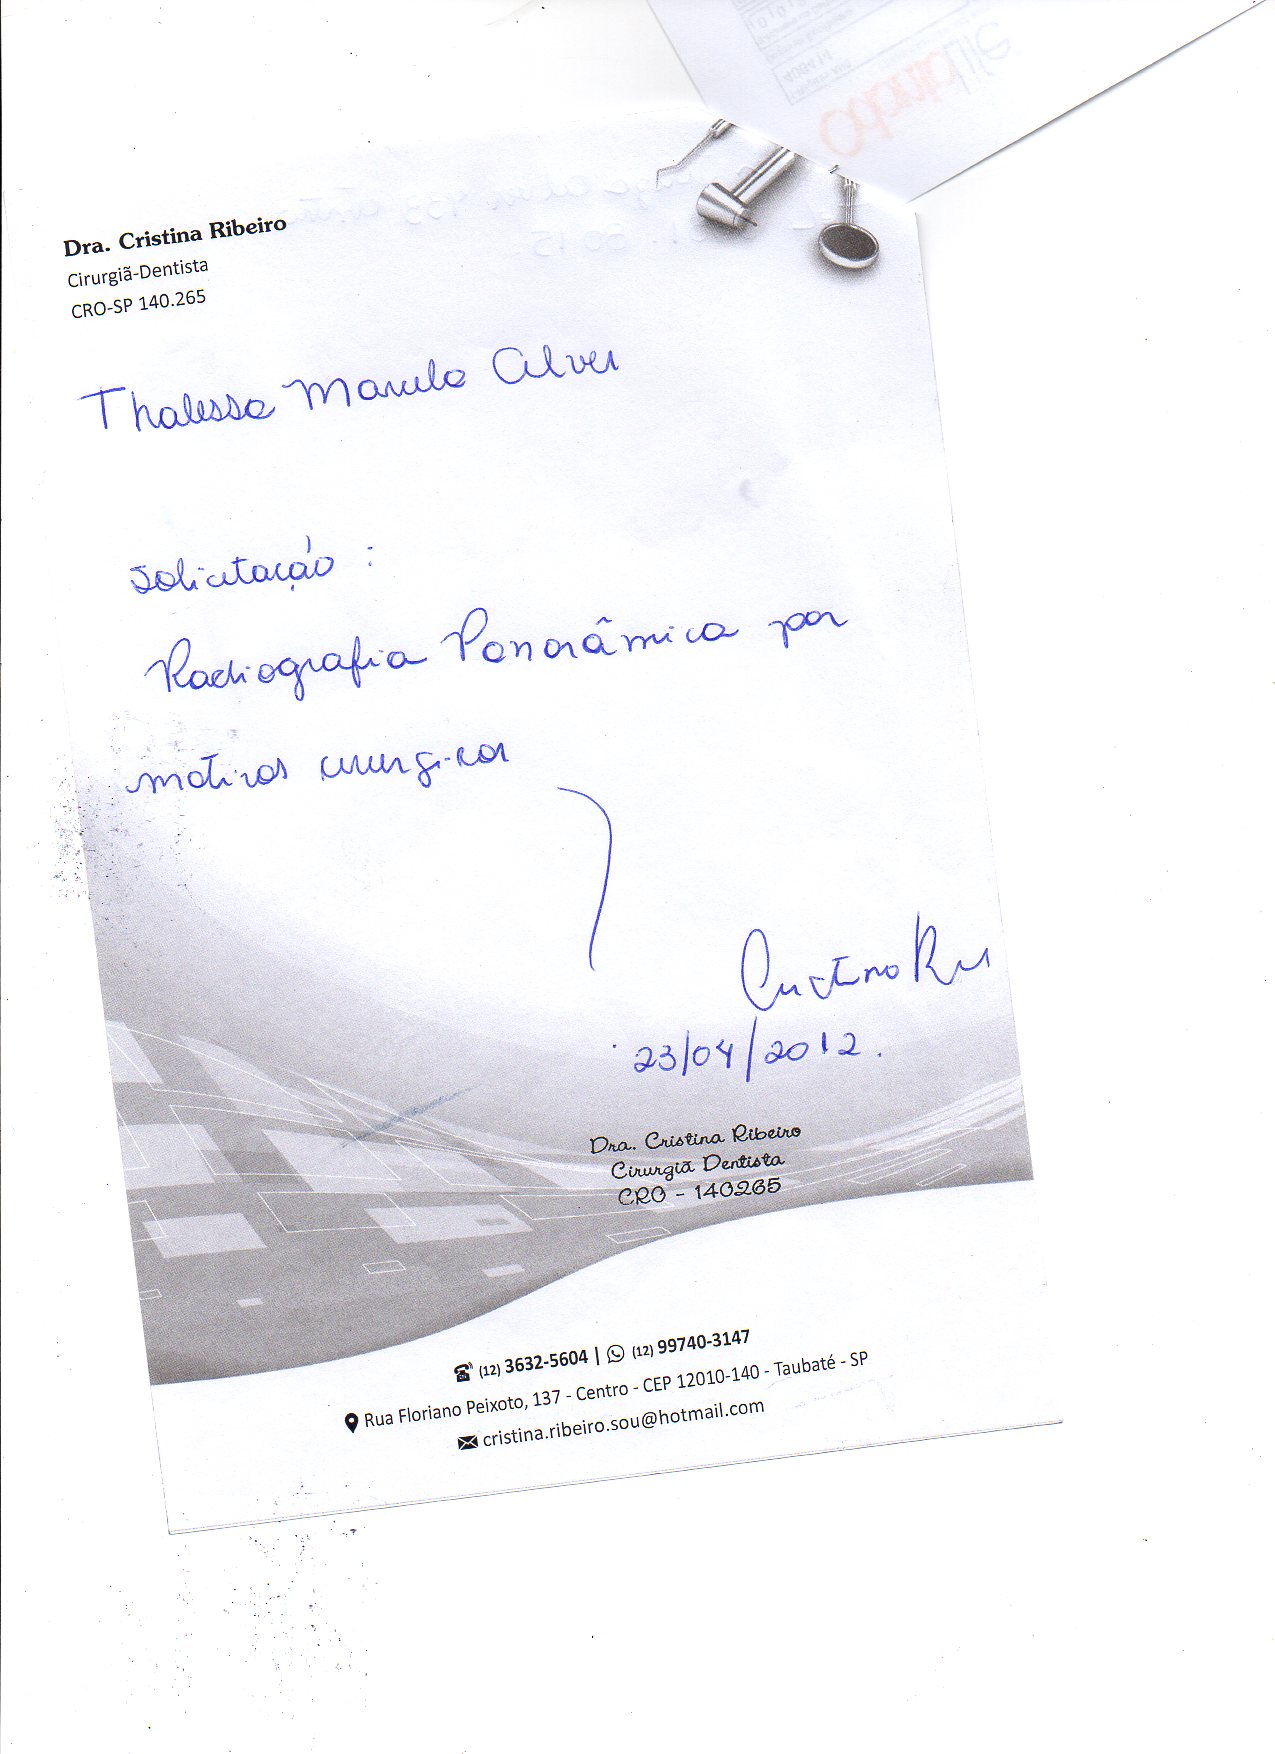 OdontoLife
Dra. Cristina Ribeiro
Cirurgiã-Dentista
CRO-SP 140.265
Thalessa Manula Alves
Solicitação :
Radiografia Panorâmica por
motivos cirurgicos
23/04/2012.
Dra. Cristina Ribeiro
Cirurgiã Dentista
CRO - 140265
(12) 3632-5604 | (12) 99740-3147
Rua Floriano Peixoto, 137 - Centro - CEP 12010-140 - Taubaté - SP
cristina.ribeiro.sou@hotmail.com